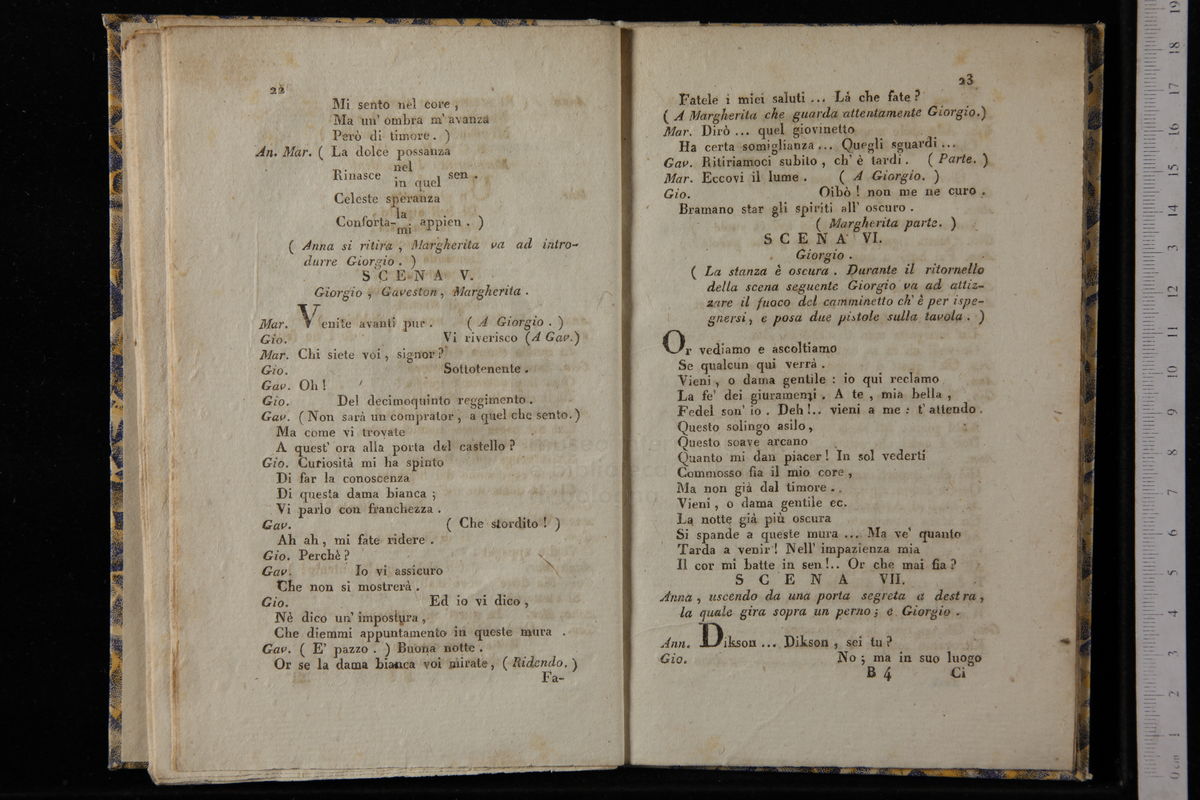 22
Mi sento nel core ,
Ma un' ombra m' avanza
Però di timore . )
An. Mar. ( La dolce possanza
Rinasce nel
in quel sen .
Celeste speranza
Conforta-la
mi appien . )
( Anna si ritira , Margherita va ad intro-
durre Giorgio . )
SCENA V.
Giorgio , Gaveston , Margherita .
Mar. Venite avanti pur . ( A Giorgio . )
Gio. Vi riverisco ( A Gav.)
Mar. Chi siete voi , signor ?
Gio. Sottotenente .
Gav. Oh !
Gio. Del decimoquinto reggimento .
Gav. ( Non sarà un comprator , a quel che sento.)
Ma come vi trovate
A quest' ora alla porta del castello ?
Gio. Curiosità mi ha spinto
Di far la conoscenza
Di questa dama bianca ;
Vi parlo con franchezza .
Gav. ( Che stordito ! )
Ah ah , mi fate ridere .
Gio. Perchè ?
Gav. Io vi assicuro
Che non si mostrerà .
Gio. Ed io vi dico ,
Nè dico un' impostura ,
Che diemmi appuntamento in queste mura .
Gav. ( E' pazzo . ) Buona notte .
Or se la dama bianca voi mirate , ( Ridendo. )
Fa-
23
Fatele i miei saluti ... Là che fate ?
( A Margherita che guarda attentamente Giorgio.)
Mar. Dirò ... quel giovinetto
Ha certa somiglianza ... Quegli sguardi ...
Gav. Ritiriamoci subito , ch' è tardi . ( Parte. )
Mar. Eccovi il lume . ( A Giorgio. )
Gio. Oibò ! non me ne curo .
Bramano star gli spiriti all' oscuro .
( Margherita parte. )
SCENA VI.
Giorgio .
( La stanza è oscura . Durante il ritornello
della scena seguente Giorgio va ad attiz-
zare il fuoco del camminetto ch' è per ispe-
gnersi , e posa due pistole sulla tavola . )
Or vediamo e ascoltiamo
Se qualcun qui verrà .
Vieni , o dama gentile : io qui reclamo
La fe' dei giuramenti . A te , mia bella ,
Fedel son' io . Deh !.. vieni a me : t' attendo .
Questo solingo asilo ,
Questo soave arcano
Quanto mi dan piacer ! In sol vederti
Commosso fia il mio core ,
Ma non già dal timore . .
Vieni , o dama gentile ec.
La notte già più oscura
Si spande a queste mura ... Ma ve' quanto
Tarda a venir ! Nell' impazienza mia
Il cor mi batte in sen !.. Or che mai fia ?
SCENA VII.
Anna , uscendo da una porta segreta a destra ,
la quale gira sopra un perno ; e Giorgio .
Ann. Dikson ... Dikson , sei tu ?
Gio. No ; ma in suo luogo
B 4 Ci